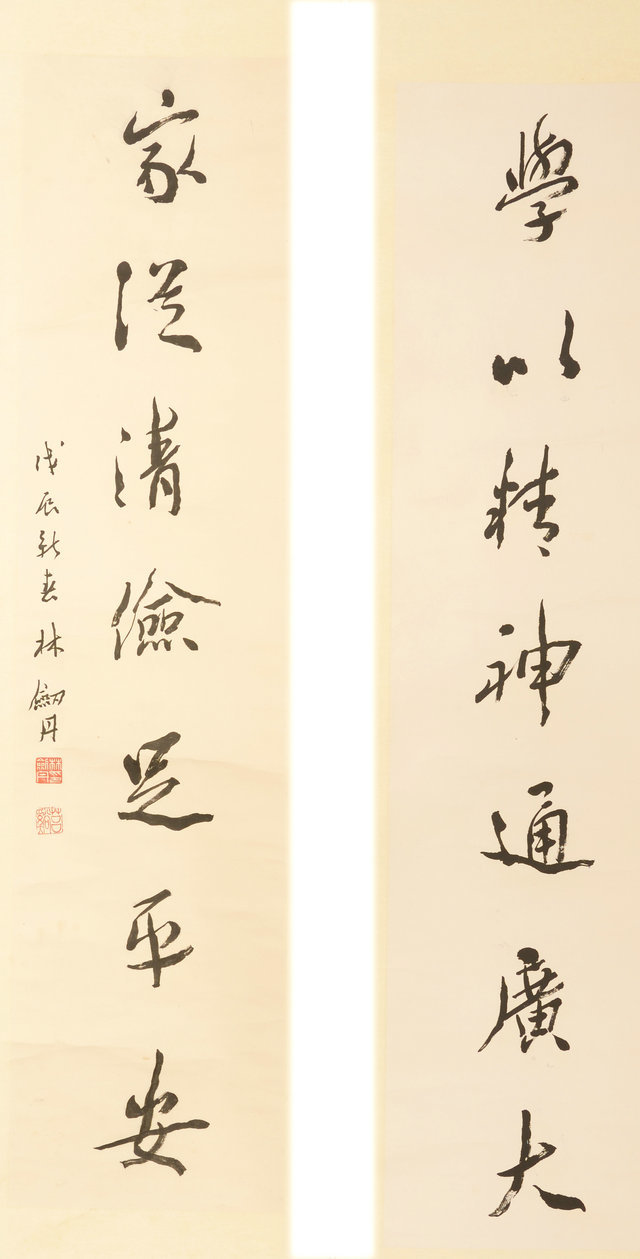 學以精神通廣大
家從清儉足平安
戊辰新春林劒丹